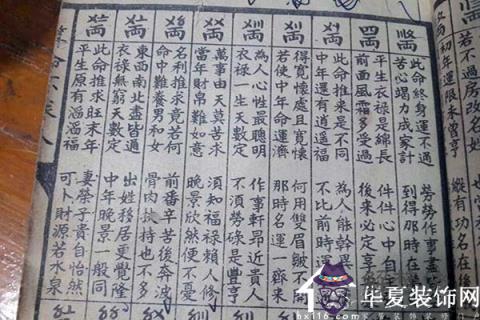 初年運限未曾亨
若不過房改名姓
縱有功名在後
此命終身運不通
勞勞作事盡
苦心竭力成家計
到得那時在
平生衣祿是綿長
件件心中自
前面風霜多受過
後來必定享
此命推來是不同
為人能幹異
中年還有逍遙福
不比前時運
得寬懷處且寬懷
何用雙眉皺不開
若使中年命運濟
那時名運一齊來
為人心性最聰明
作事軒昂近貴人
衣祿一生天數定
不須勞碌是豐亨
萬事由天莫苦求
須知福祿賴人修
當年財帛難如意
晚景欣然便不憂
名利推求竟若何
前番辛苦後奔波
命中難養男和女
骨肉扶持也不多
東西南北盡皆通
出姓移居更覺隆
衣祿無窮天數定
中年晚景一般同
此命推求旺末年
妻榮子貴自怡然
平生原有滔滔福
可卜財源若水泉
华夏装饰网
hx116.com